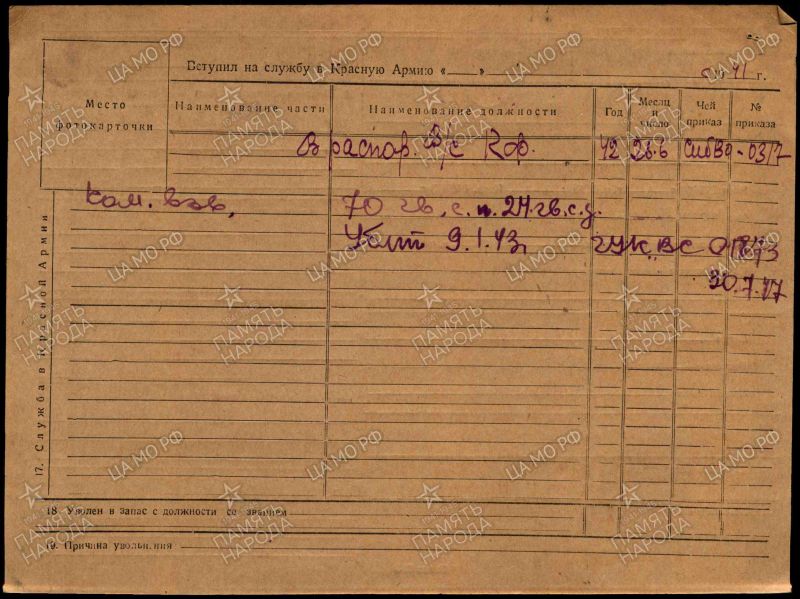 Вступил на службу в Красную Армию «    »    41 г.
Место фотокарточки
Наименование части
Наименование должности
Год
Месяц и число
Чей приказ
№ приказа
В распор. В/с Кф. 42 28.6 СибВО - 03/7
Ком. взв. 70 гв. с. п. 24 гв. с. д.
Убит 9.1.43 ГУК ВС
30.7.47
17. Служба в Красной Армии
18 Уволен в запас с должности со званием
19. Причина увольнения
ПАМЯТЬ НАРОДА
ЦА МО РФ